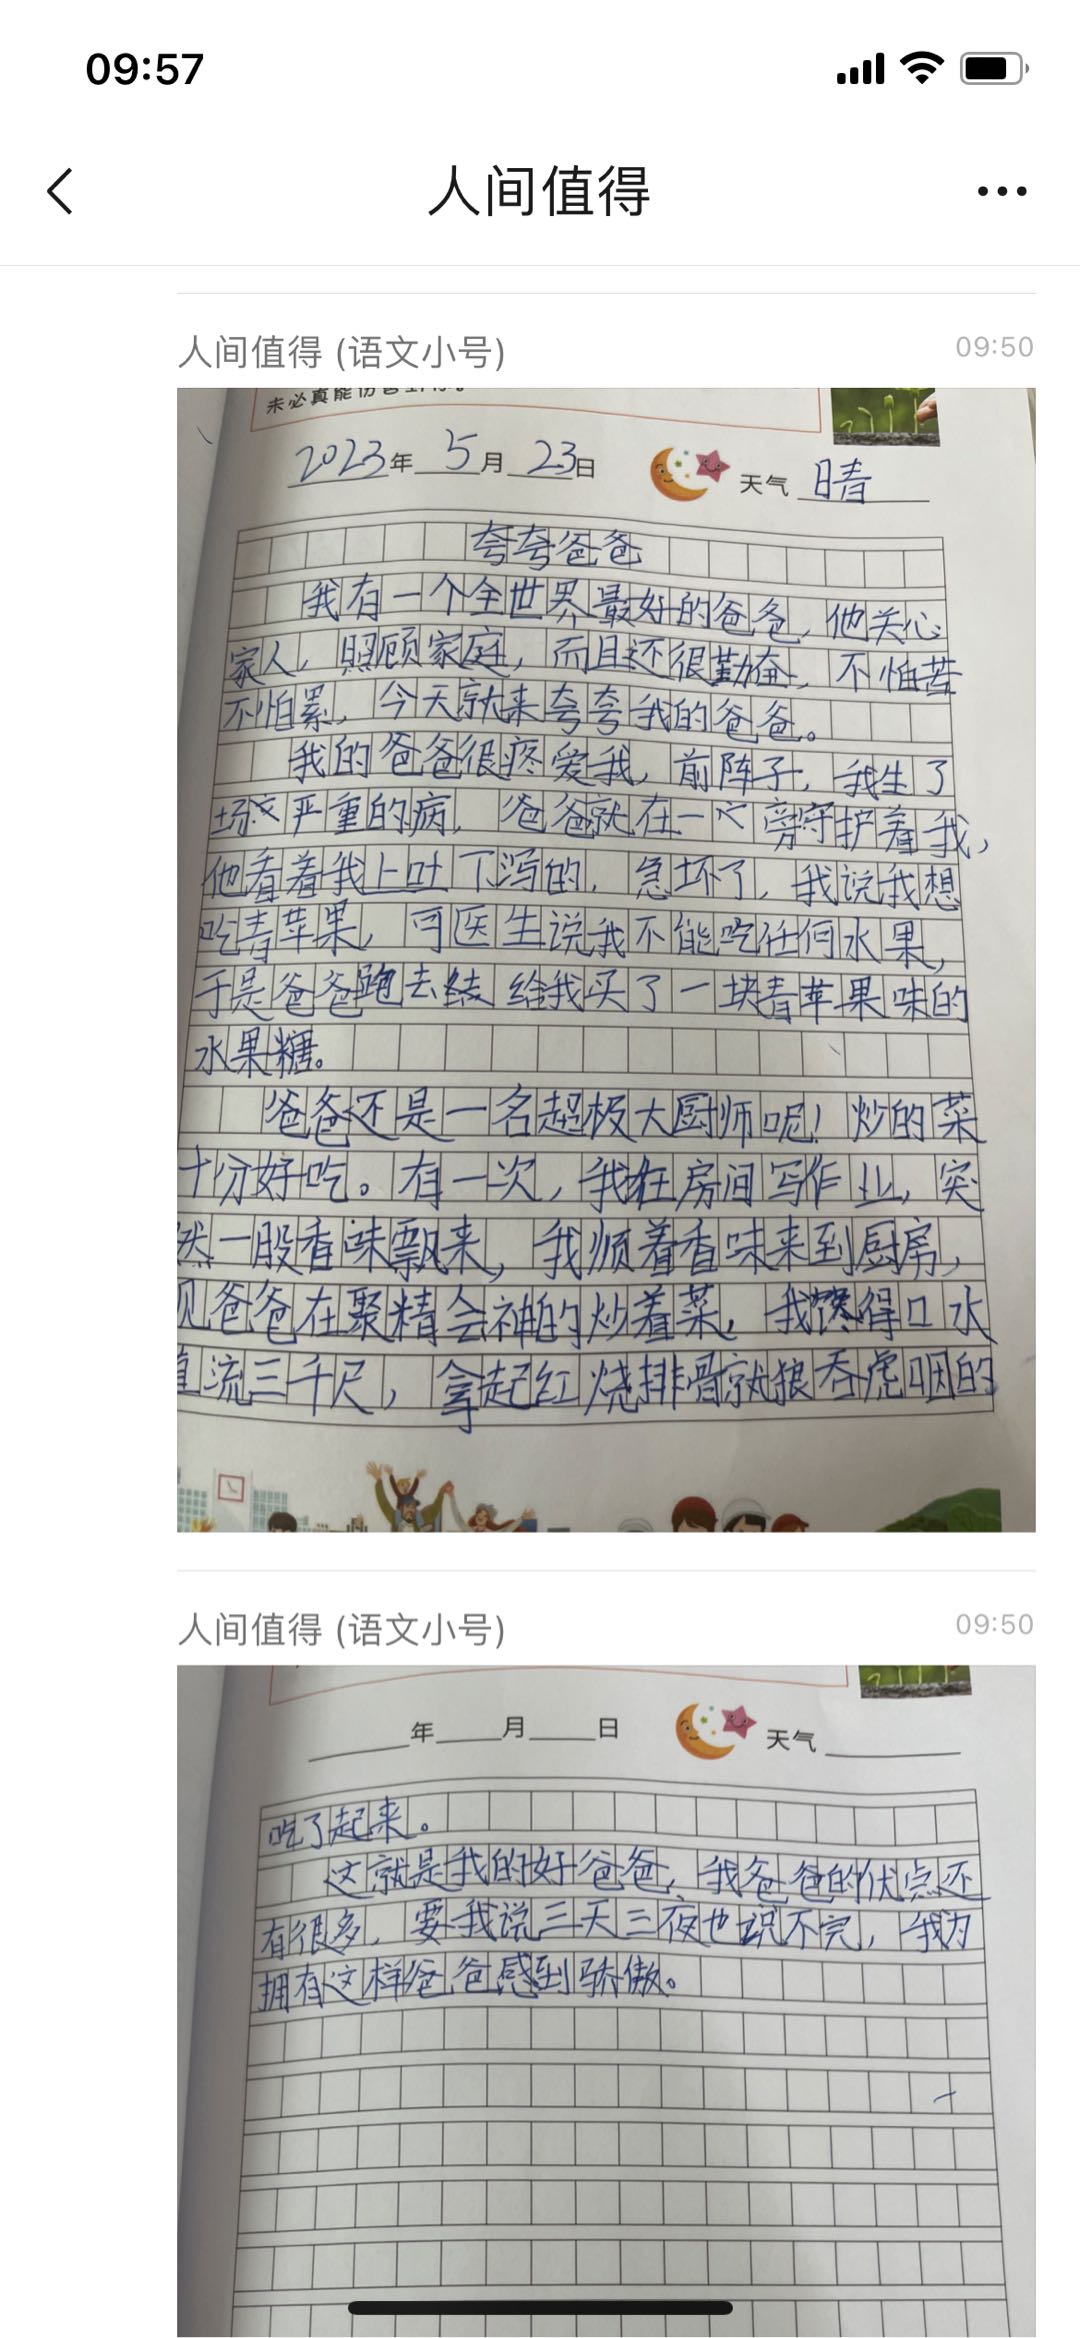 09:57
人间值得
人间值得 (语文小号)
09:50
2023年 5月 23日
天气 晴
夸夸爸爸
我有一个全世界最好的爸爸，他关心
家人，照顾家庭，而且还很勤奋，不怕苦
不怕累，今天就来夸夸我的爸爸。
我的爸爸很疼爱我，前阵子，我生了
场严重的病，爸爸就在一旁守护着我，
他看着我上吐下泻的，急坏了，我说我想
吃青苹果，可医生说我不能吃任何水果，
于是爸爸跑去给我买了一块青苹果味的
水果糖。
爸爸还是一名超极大厨师呢！炒的菜
十分好吃。有一次，我在房间写作业，突
然一股香味飘来，我顺着香味来到厨房，
见爸爸在聚精会神的炒着菜，我馋得口水
直流三千尺，拿起红烧排骨就狼吞虎咽的
人间值得 (语文小号)
09:50
年 月 日
天气
吃了起来。
这就是我的好爸爸，我爸爸的优点还
有很多，要我说三天三夜也说不完，我为
拥有这样爸爸感到骄傲。